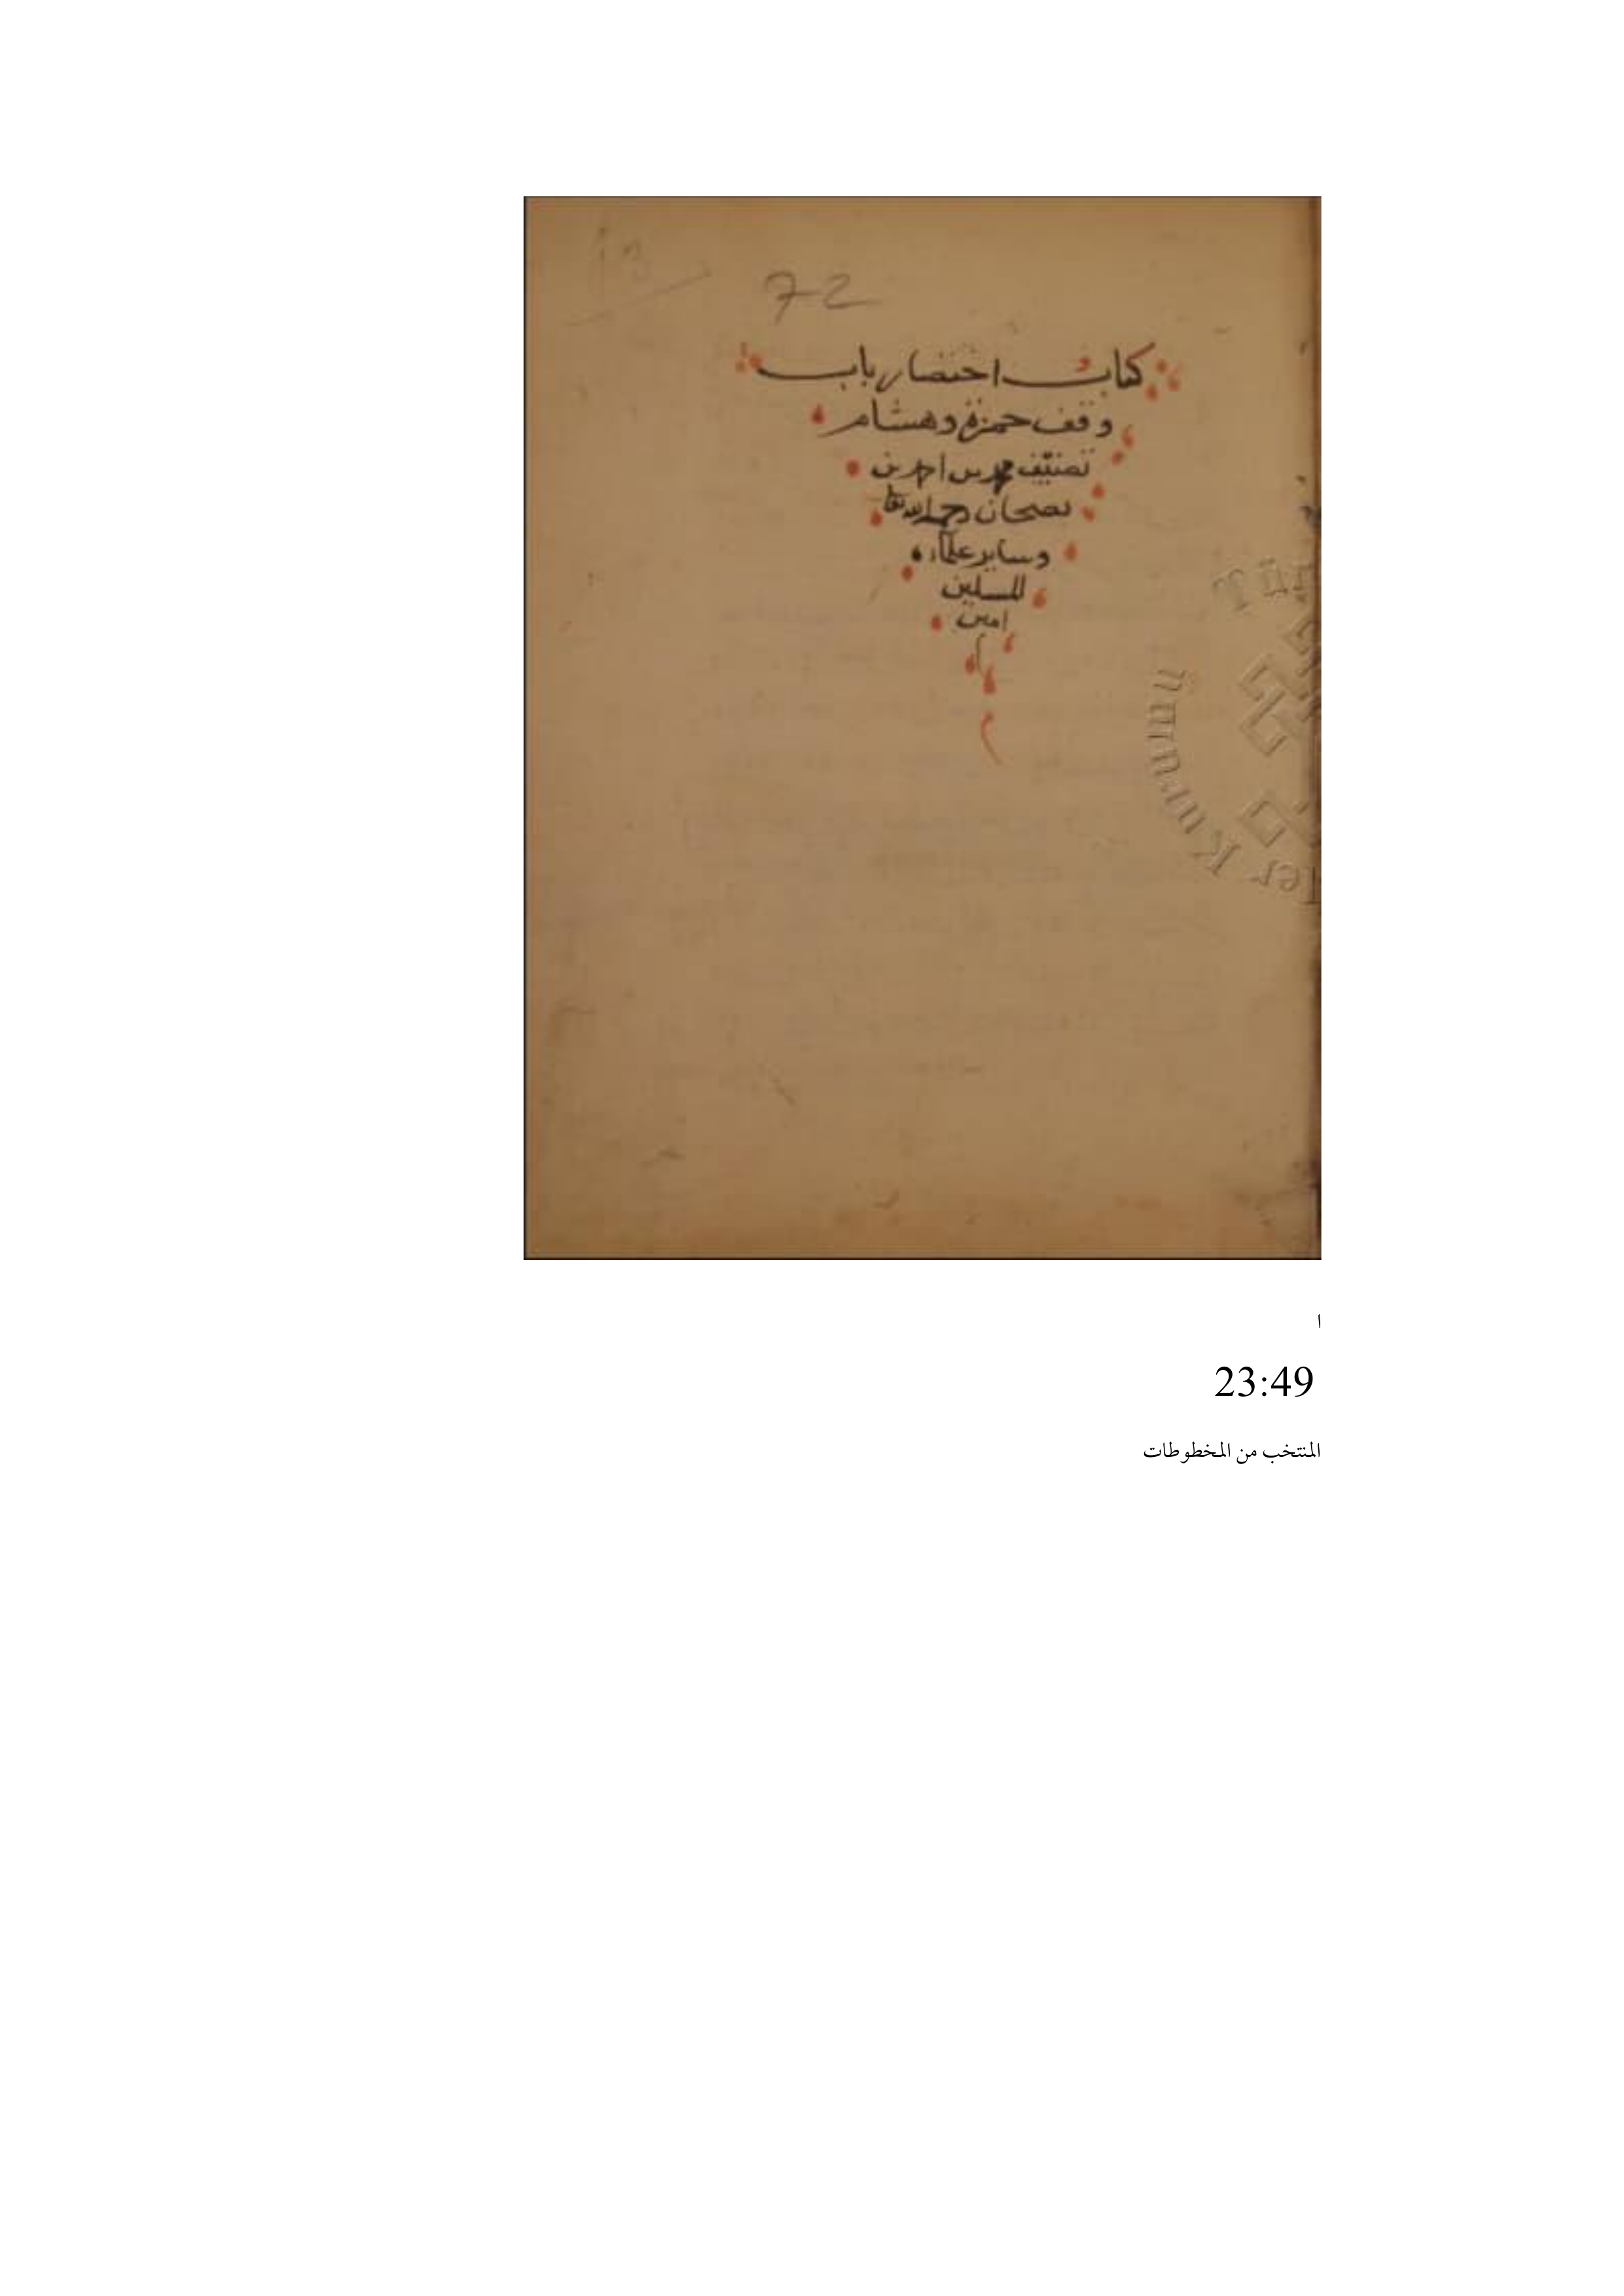 72
كتاب اختصار باب
وقف حمزة وهشام
تصنيف محمد بن احمد بن
بصخان رحمه الله تعا
وساير علماء
المسلمين
امين
ا
23:49
المنتخب من المخطوطات